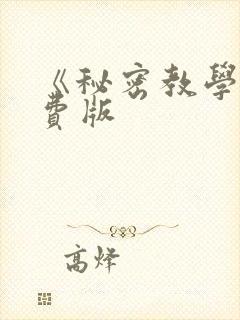 《秘密教學
費版
高烽